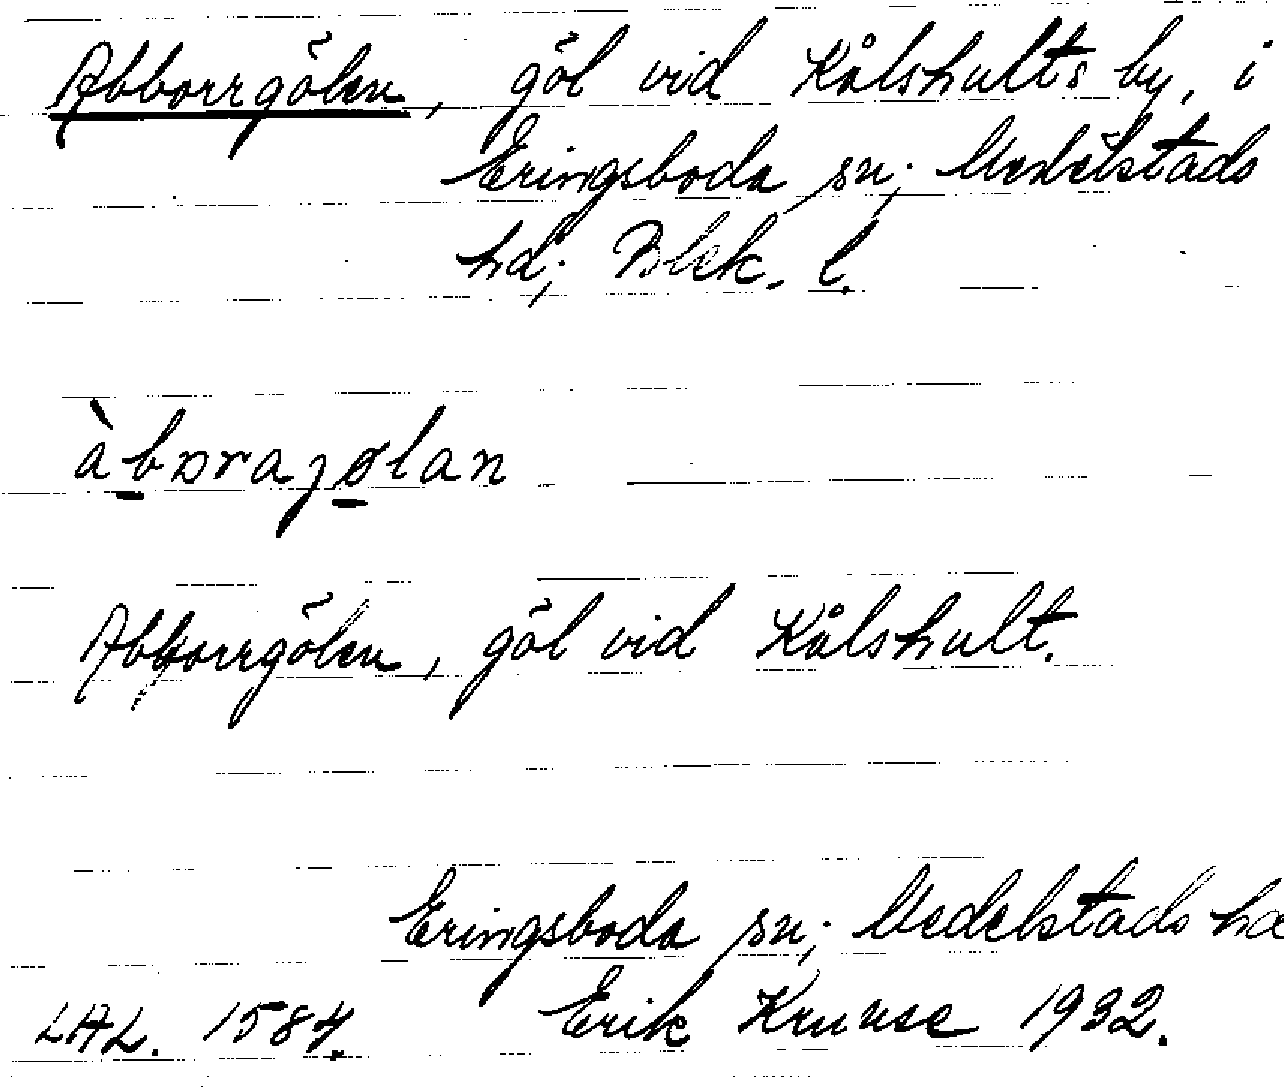 Abborrgölen, göl vid Kålshults by, i
Eringsboda sn; Medelstads
hd; Blek. l.
àbɒraȝølan
Abborrgölen, göl vid Kålshult.
Eringsboda sn; Medelstads hd
LAL. 1584. Erik Kruuse 1932.